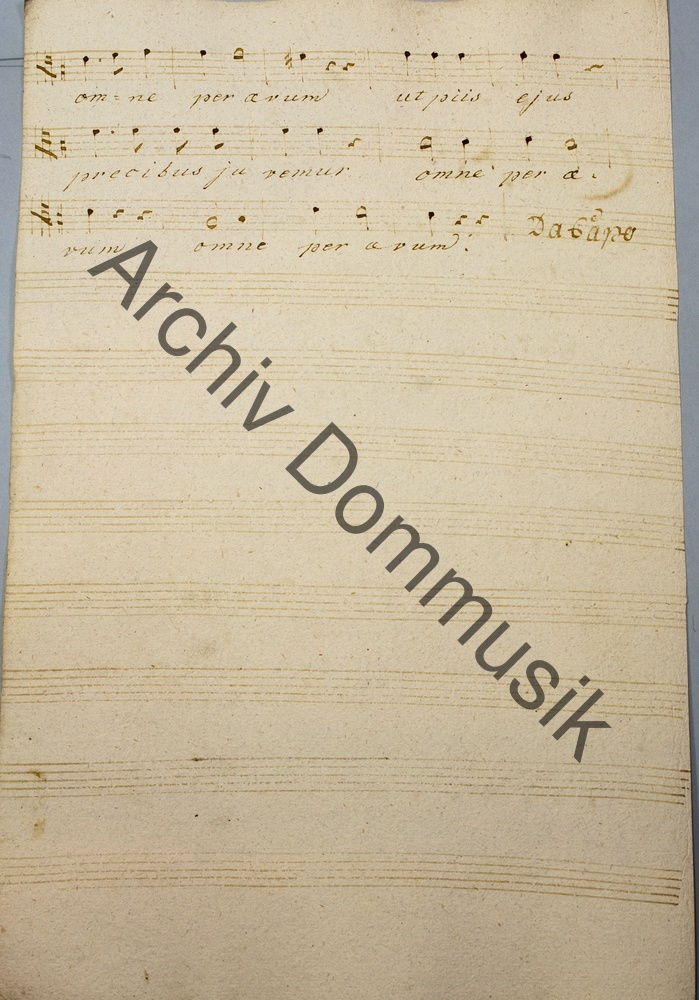 om = ne per ærum ut piis ejus
precibus ju vemur omne per æ.
vum omne per ævum. Da Capo
Archiv Dommusik